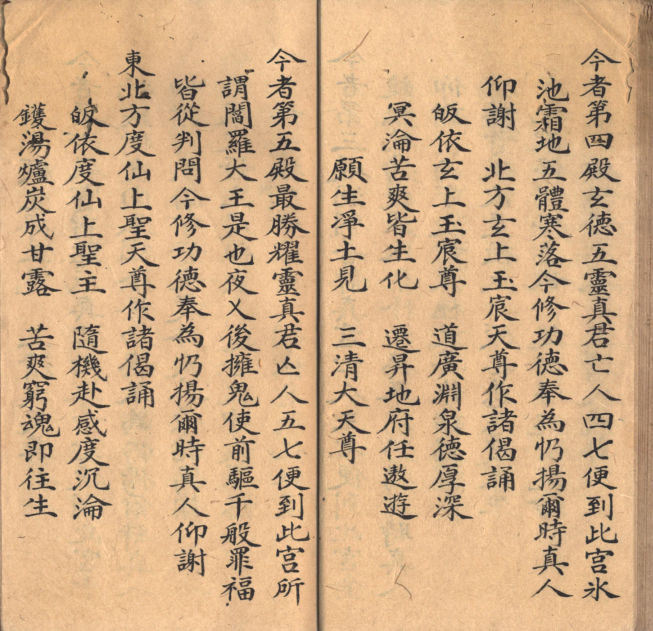 今者第四殿玄德五靈真君亡人四七便到此宮氷
池霜地五體寒落今修功德奉為忉揚爾時真人
仰謝 北方玄上玉宸天尊作諸偈誦
皈依玄上玉宸尊 道廣淵泉德厚深
冥淪苦爽皆生化 遷昇地府任遨遊
願生淨土見 三清大天尊
今者第五殿最勝耀靈真君亾人五七便到此宮所
謂閻羅大王是也夜乂後擁鬼使前驅千般罪福
皆從判問今修功德奉為忉揚爾時真人仰謝
東北方度仙上聖天尊作諸偈誦
皈依度仙上聖主 隨機赴感度沉淪
鑊湯爐炭成甘露 苦爽窮魂即往生